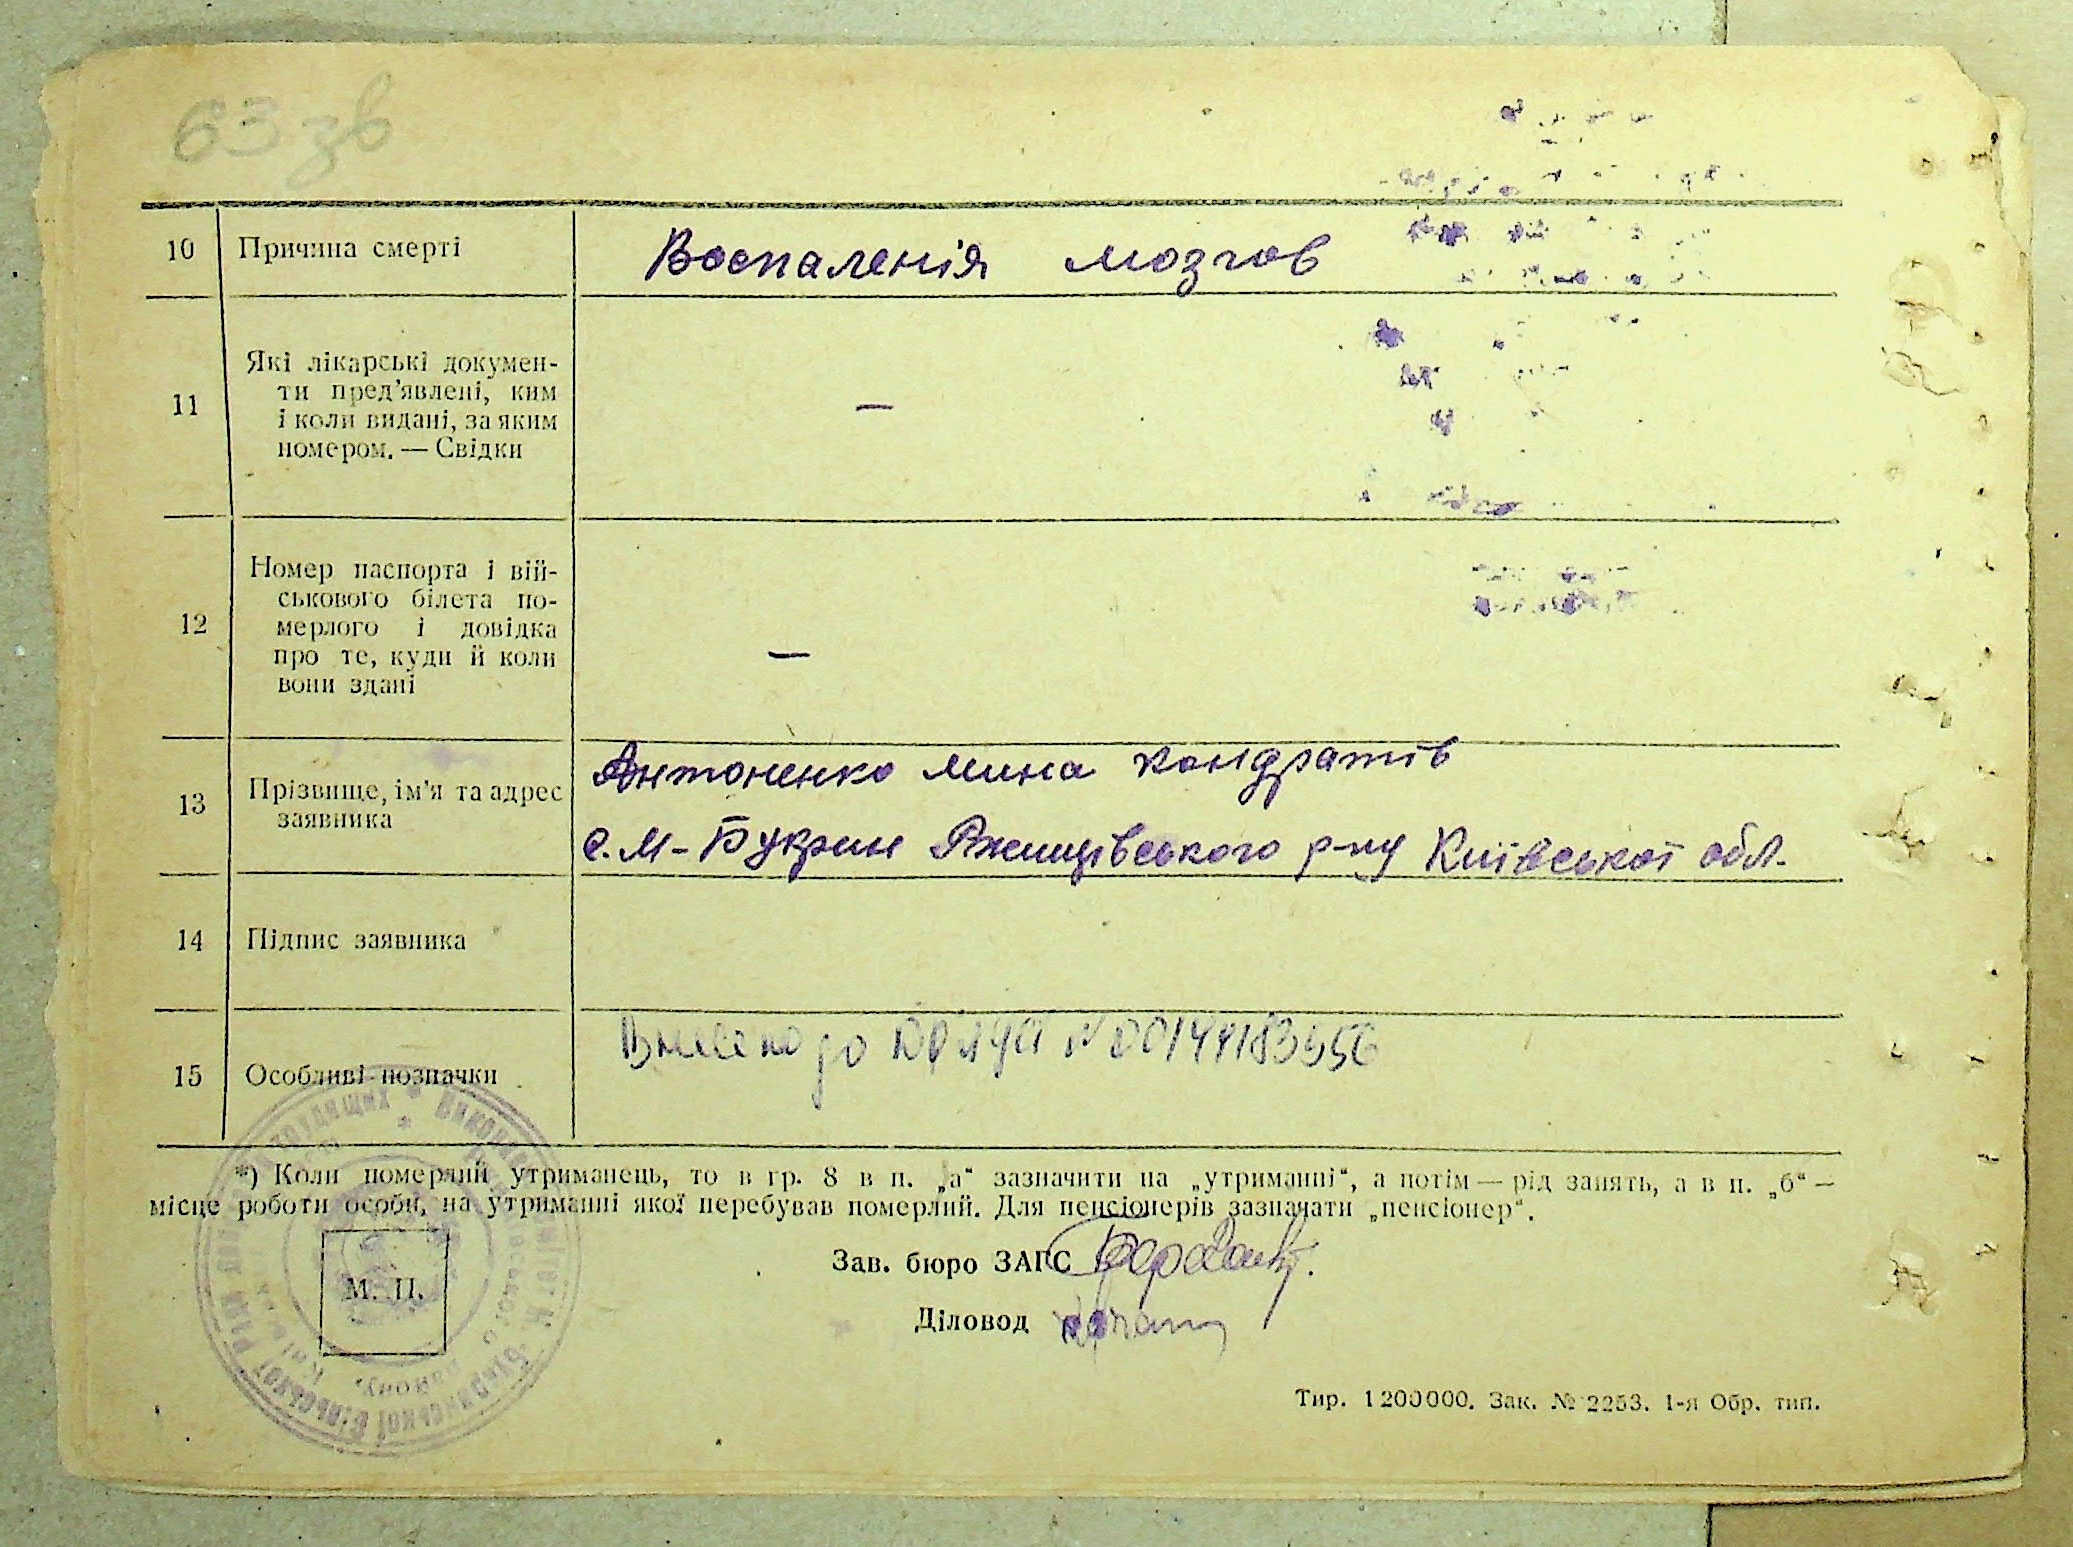 63 зв
10 Причина смерті Воспаленія мозгов
11 Які лікарські докумен-
ти пред’явлені, ким
і коли видані, за яким
номером. — Свідки
—
12 Номер паспорта і вій-
ськового білета по-
мерлого і довідка
про те, куди й коли
вони здані
—
13 Прізвище, ім’я та адрес
заявника
Антоненко Мина Кондратів
с. М-Букрин Ржищівського р-ну Київської обл.
14 Підпис заявника
15 Особливі позначки
Внесено до
*) Коли померлий утриманець, то в гр. 8 в п. „а“ зазначити на „утриманні“, а потім — рід занять, а в п. „б“ —
місце роботи особи, на утриманні якої перебував померлий. Для пенсіонерів зазначати „пенсіонер“.
Зав. бюро ЗАГС
М. П.
Діловод
Тир. 1200000. Зак. № 2253. 1-я Обр. тип.